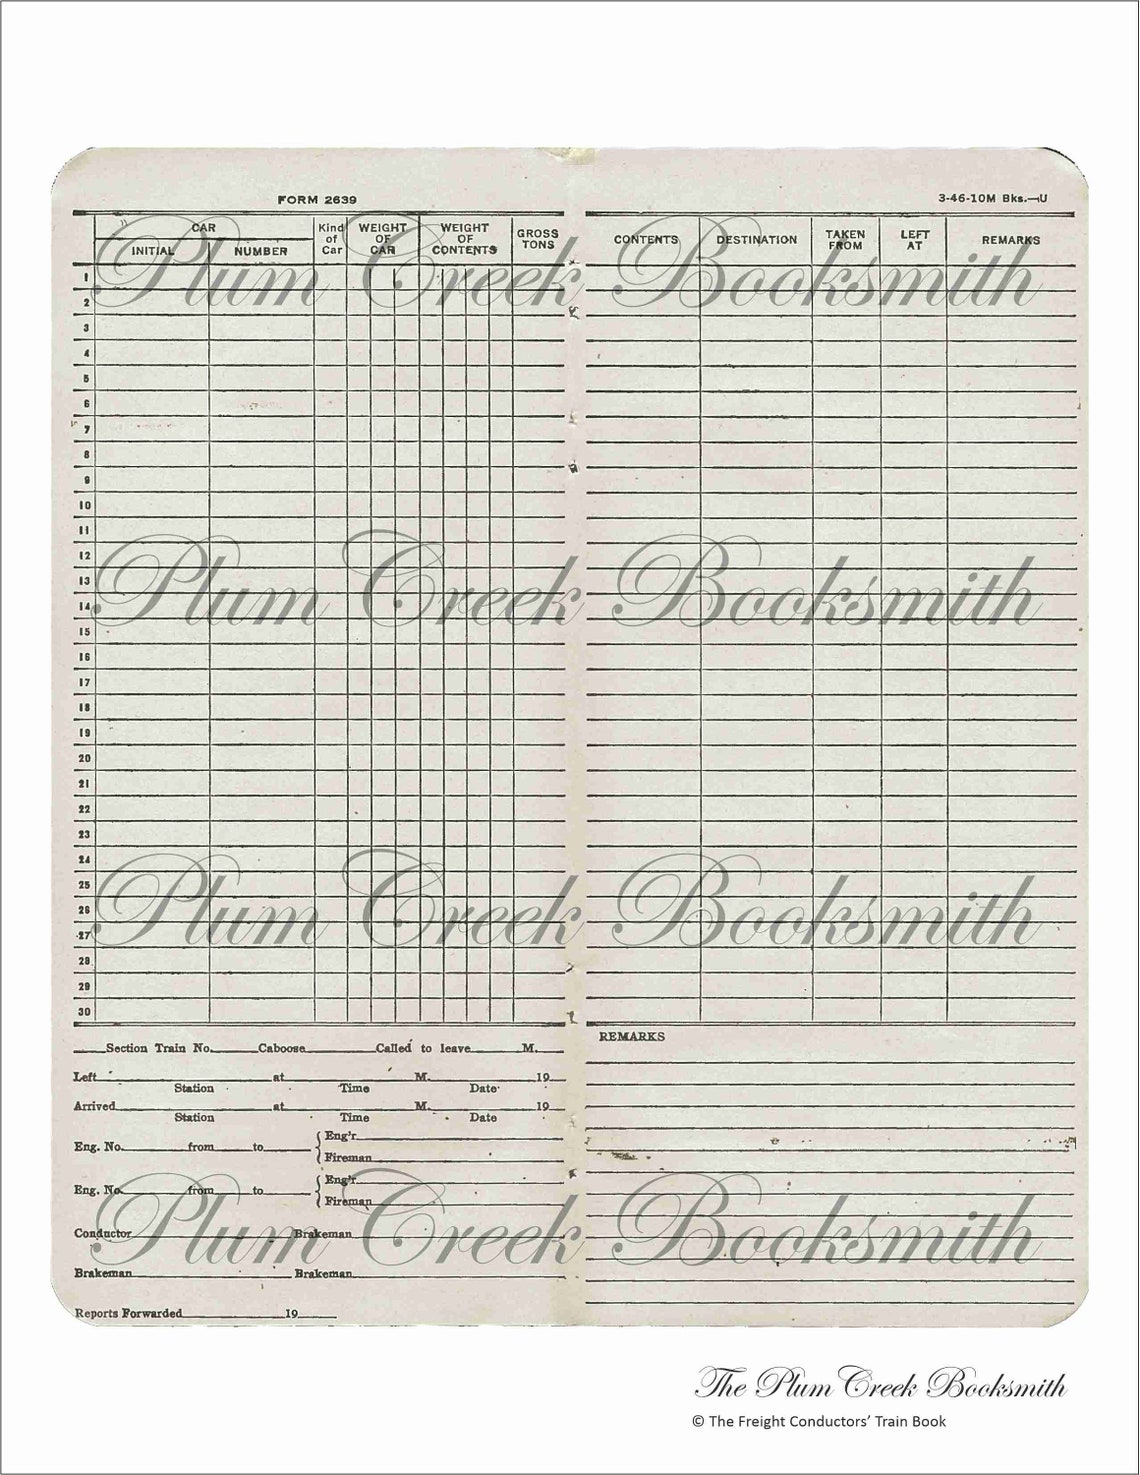 FORM 2639
3-46-10M Bks.—U
CAR
INITIAL
NUMBER
Kind
of
Car
WEIGHT
OF
CAR
WEIGHT
OF
CONTENTS
GROSS
TONS
CONTENTS
DESTINATION
TAKEN
FROM
LEFT
AT
REMARKS
1
2
3
4
5
6
7
8
9
10
11
12
13
14
15
16
17
18
19
20
21
22
23
24
25
26
27
28
29
30
Plum Creek Booksmith
Plum Creek Booksmith
Plum Creek Booksmith
Plum Creek Booksmith
Section Train No. Caboose Called to leave M.
Left at M. 19
Station Time Date
Arrived at M. 19
Station Time Date
Eng. No. from to
Eng'r
Fireman
Eng. No. from to
Eng'r
Fireman
Conductor Brakeman
Brakeman Brakeman
Reports Forwarded 19
REMARKS
The Plum Creek Booksmith
© The Freight Conductors' Train Book